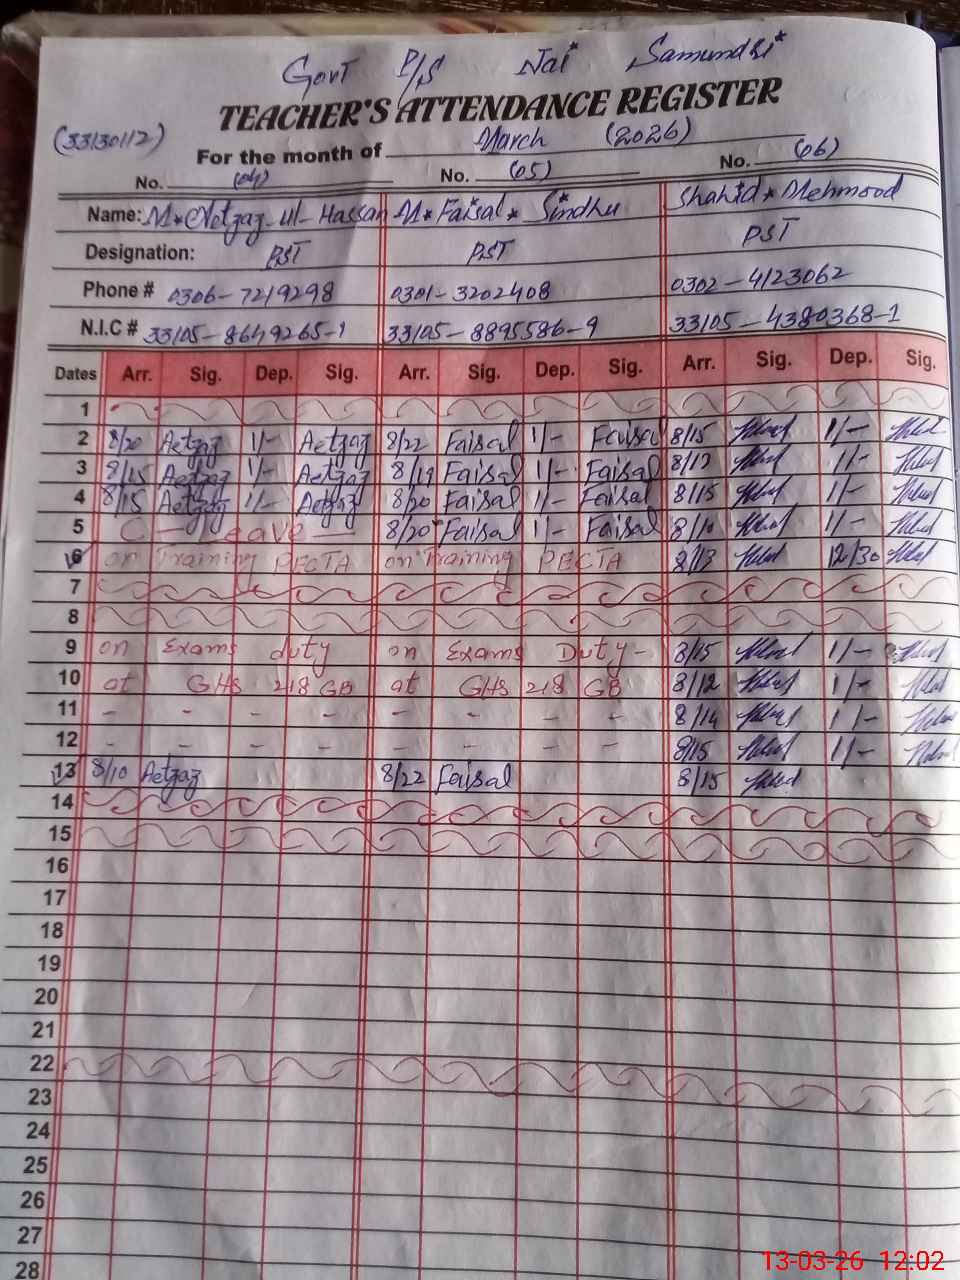 Govt P/S Nai* Samundri*
TEACHER'S ATTENDANCE REGISTER
(33130112) For the month of March (2026)
No. (04) No. (05) No. (06)
Name: M*Aetzaz-ul-Hassan M*Faisal* Sindhu Shahid*Mehmood
Designation: PST PST PST
Phone # 0306-7219298 0301-3202408 0302-4123062
N.I.C # 33105-8649265-1 33105-8895586-9 33105-4380368-1
Dates Arr. Sig. Dep. Sig. Arr. Sig. Dep. Sig. Arr. Sig. Dep. Sig.
1
2 8/20 Aetzaz 1/- Aetzaz 8/22 Faisal 1/- Faisal 8/15 1/-
3 8/15 Aetzaz 1/- Aetzaz 8/19 Faisal 1/- Faisal 8/12 1/-
4 8/15 Aetzaz 1/- Aetzaz 8/20 Faisal 1/- Faisal 8/15 1/-
5 C - Leave - 8/20 Faisal 1/- Faisal 8/10 1/-
6 on Training PECTA on Training PECTA 8/13 12/30
7
8
9 on Exams duty on Exams Duty - 8/15 1/-
10 at GHS 218 GB at GHS 218 GB 8/12 1/-
11 - - - - - - - - 8/14 1/-
12 - - - - - - - - 8/15 1/-
13 8/10 Aetzaz 8/22 Faisal 8/15
14
15
16
17
18
19
20
21
22
23
24
25
26
27
28
13-03-26 12:02